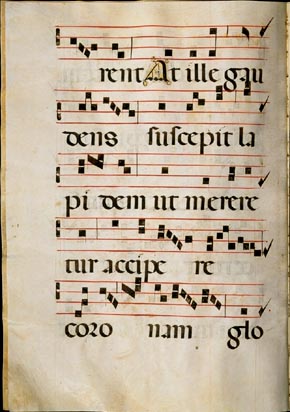 rent At ille gau
dens suscepit la
pi dem ut merere
tur accipe re
coro nam glo